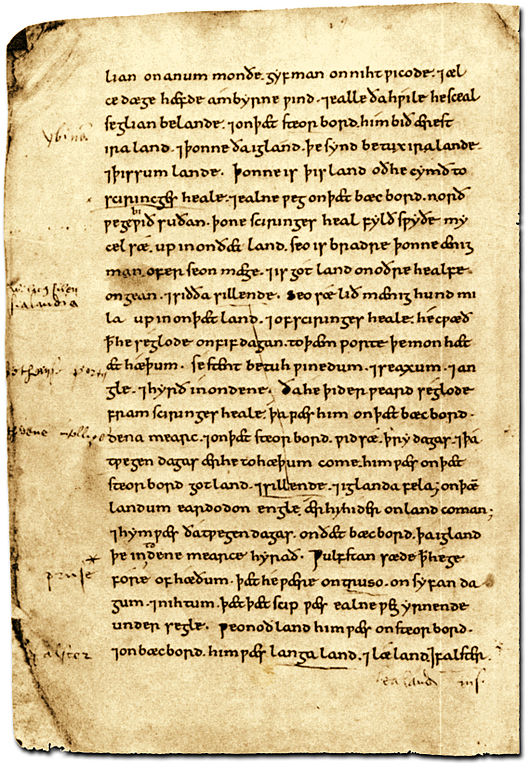 lian on anum monðe. gyf man on niht ƿicode. ⁊ æl
ce dæge hæfde ambyrne ƿind. ⁊ ealle ða hƿile he sceal
seglian be lande. ⁊ on þæt steorbord. him bið ærest
iraland. ⁊ þonne ða igland. þe synd betux iralande.
⁊ þissum lande. Þonne is þis land oð he cymð to
scirincges heale. ⁊ ealne ƿeg on þæt bæcbord. norð
ƿege ƿið suðan. þone sciringes heal fylð sƿyðe my
cel sæ. up in on ðæt land. seo is bradre þonne ænig
man ofer seon mæge. ⁊ is gotland on oðre healfe
ongean. ⁊ siðða sillende. Seo sæ lið mænig hund mi
la up in on þæt land. ⁊ of sciringes heale. he cƿæð
ꝥ he seglode on fif dagan. to þæm porte þe mon hæt
æt hæþum. se stent betuh ƿinedum. ⁊ seaxum. ⁊ an
gle. ⁊ hyrð in on dene. Ða he þiderƿeard seglode
fram sciringes heale. þa ƿæs him on þæt bæcbord.
dena mearc. ⁊ on þæt steorbord. ƿid sæ. þry dagas. ⁊ þa
tƿegen dagas ær he to hæþum come. him ƿæs on þæt
steorbord gotland. ⁊ sillende. ⁊ iglanda fela; on þæ
landum eardodon engle. ær hi hider on land coman;
⁊ hym ƿæs ða tƿegen dagas. on ðæt bæcbord. þa igland
þe in denemearce hyrað. Ƿulfstan sæde ꝥ he ge
fore of hæðum. þæt he ƿære on truso. on syfan da
gum. ⁊ nihtum. þæt þæt scip ƿæs ealne ƿeg yrnende
under segle. Ƿeonoðland him ƿæs on steorbord.
⁊ on bæcbord. him ƿæs langaland. ⁊ læland. ⁊ falster.
falster